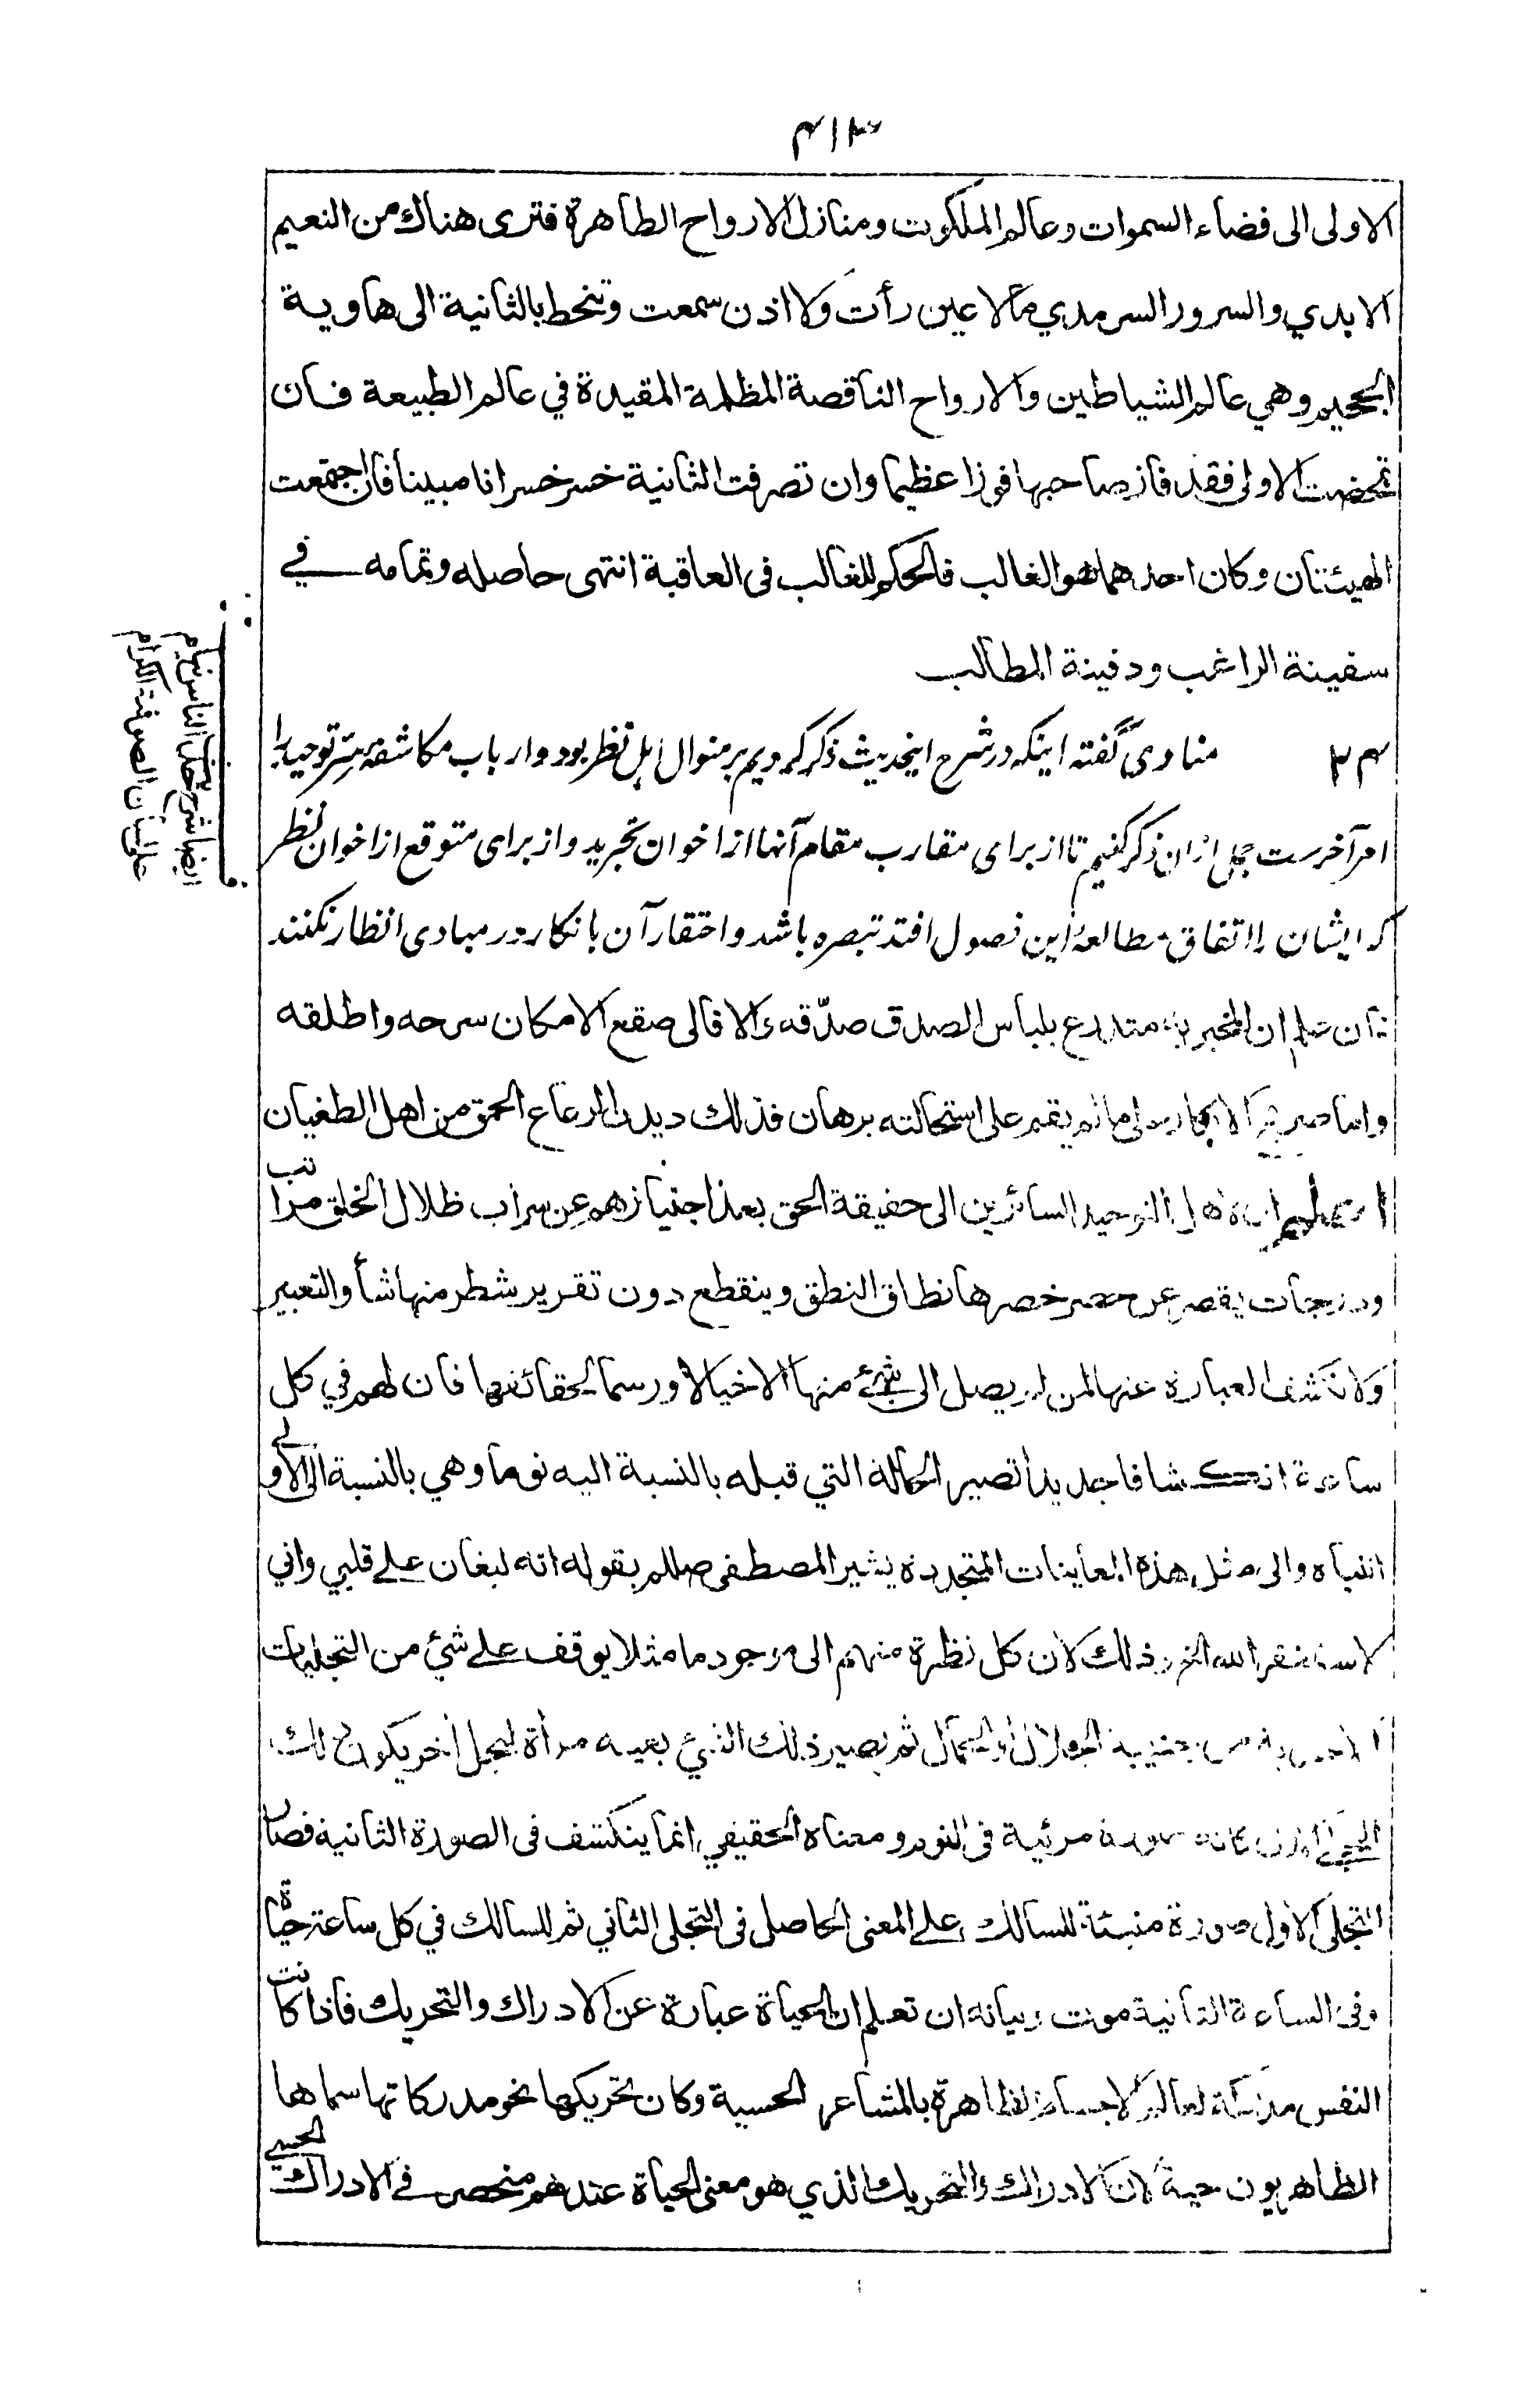 ۴۱۳
الاولى الى فضاء السموات وعالم الملكوت ومنازل الارواح الطاهرة فترى هناك من النعيم
الابدي والسرور السرمدي مالا عين رأت ولا اذن سمعت وتنحط بالثانية الى هاوية
الجحيم وهي عالم الشياطين والارواح الناقصة المظلمة المقيدة في عالم الطبيعة فان
تمحضت الاولى فقد فاز صاحبها فوزا عظيما وان تصرفت الثانية خسر خسرانا مبينا فان اجتمعت
الهيئتان وكان احدهما هو الغالب فالحكم للغالب فى العاقبة انتهى حاصله وتمامه في
سفينة الراغب ودفينة المطالب
ايضا شرح حديث الناس نيام
على لسان الصوفية الكرام
۳۴ مناوى گفته اينكه در شرح اينحديث ذكر كرديم بر منوال اهل نظر بود و ارباب مكاشفهٔ سر توحيد را
امر آخرست جمل ازان ذكر كنيم تا از براى مقارب مقام آنها از اخوان تجريد و از براى متوقع از اخوان نظر
كه ايشان را اتفاق مطالعهٔ اين فصول افتد تبصره باشد و احتقار آن بانكار در مبادى انظار نكنند
ان علم ان المخبر به متدرع بلباس الصدق صدّقه والا فالى صقع الامكان سرحه واطلقه
واما الانكار على ما لم يقم على استحالته برهان فذلك ديدن الرعاع الحمق من اهل الطغيان
اهل التوحيد السائرين الى حقيقة الحق بعد اجتيازهم عن سراب ظلال الخلق مراتب
ودرجات يقصر عن حصر خصرها نطاق النطق وينقطع دون تقرير شطر منها شأو التعبير
ولا تكشف العبارة عنها لمن لم يصل الى شئ منها الا خيالا ورسما لحقائقها فان لهم في كل
ساعة انكشافا جديدا تصير الحالة التي قبله بالنسبة اليه نوما وهي بالنسبة الى الاولى
انتباه والى مثل هذه المعاينات المتجددة يشير المصطفى صللم بقوله انه ليغان على قلبي واني
لاستغفر الله الخ وذلك لان كل نظرة منهم الى موجود ما مثلا يوقف على شئ من التجليات
الجلال او الجمال ثم يصير ذلك الشئ بعينه مرأة لتجل أخر يكون ذلك
التجلي صورة مرئية فى النوم ومعناه الحقيقي انما ينكشف فى الصورة الثانية فصار
التجلى الاول صورة منبئة للسالك على المعنى الحاصل فى التجلى الثاني ثم للسالك في كل ساعة حياة
وفى الساعة الثانية موت وبيانه ان تعلم ان الحياة عبارة عن الادراك والتحريك فاذا كانت
النفس مدركة لعالم الاجسام الظاهرة بالمشاعر الحسية وكان تحريكها نحو مدركاتها سماها
الظاهريون حية لان الادراك والتحريك الذي هو معنى الحياة عندهم منحصر في الادراك الحسي